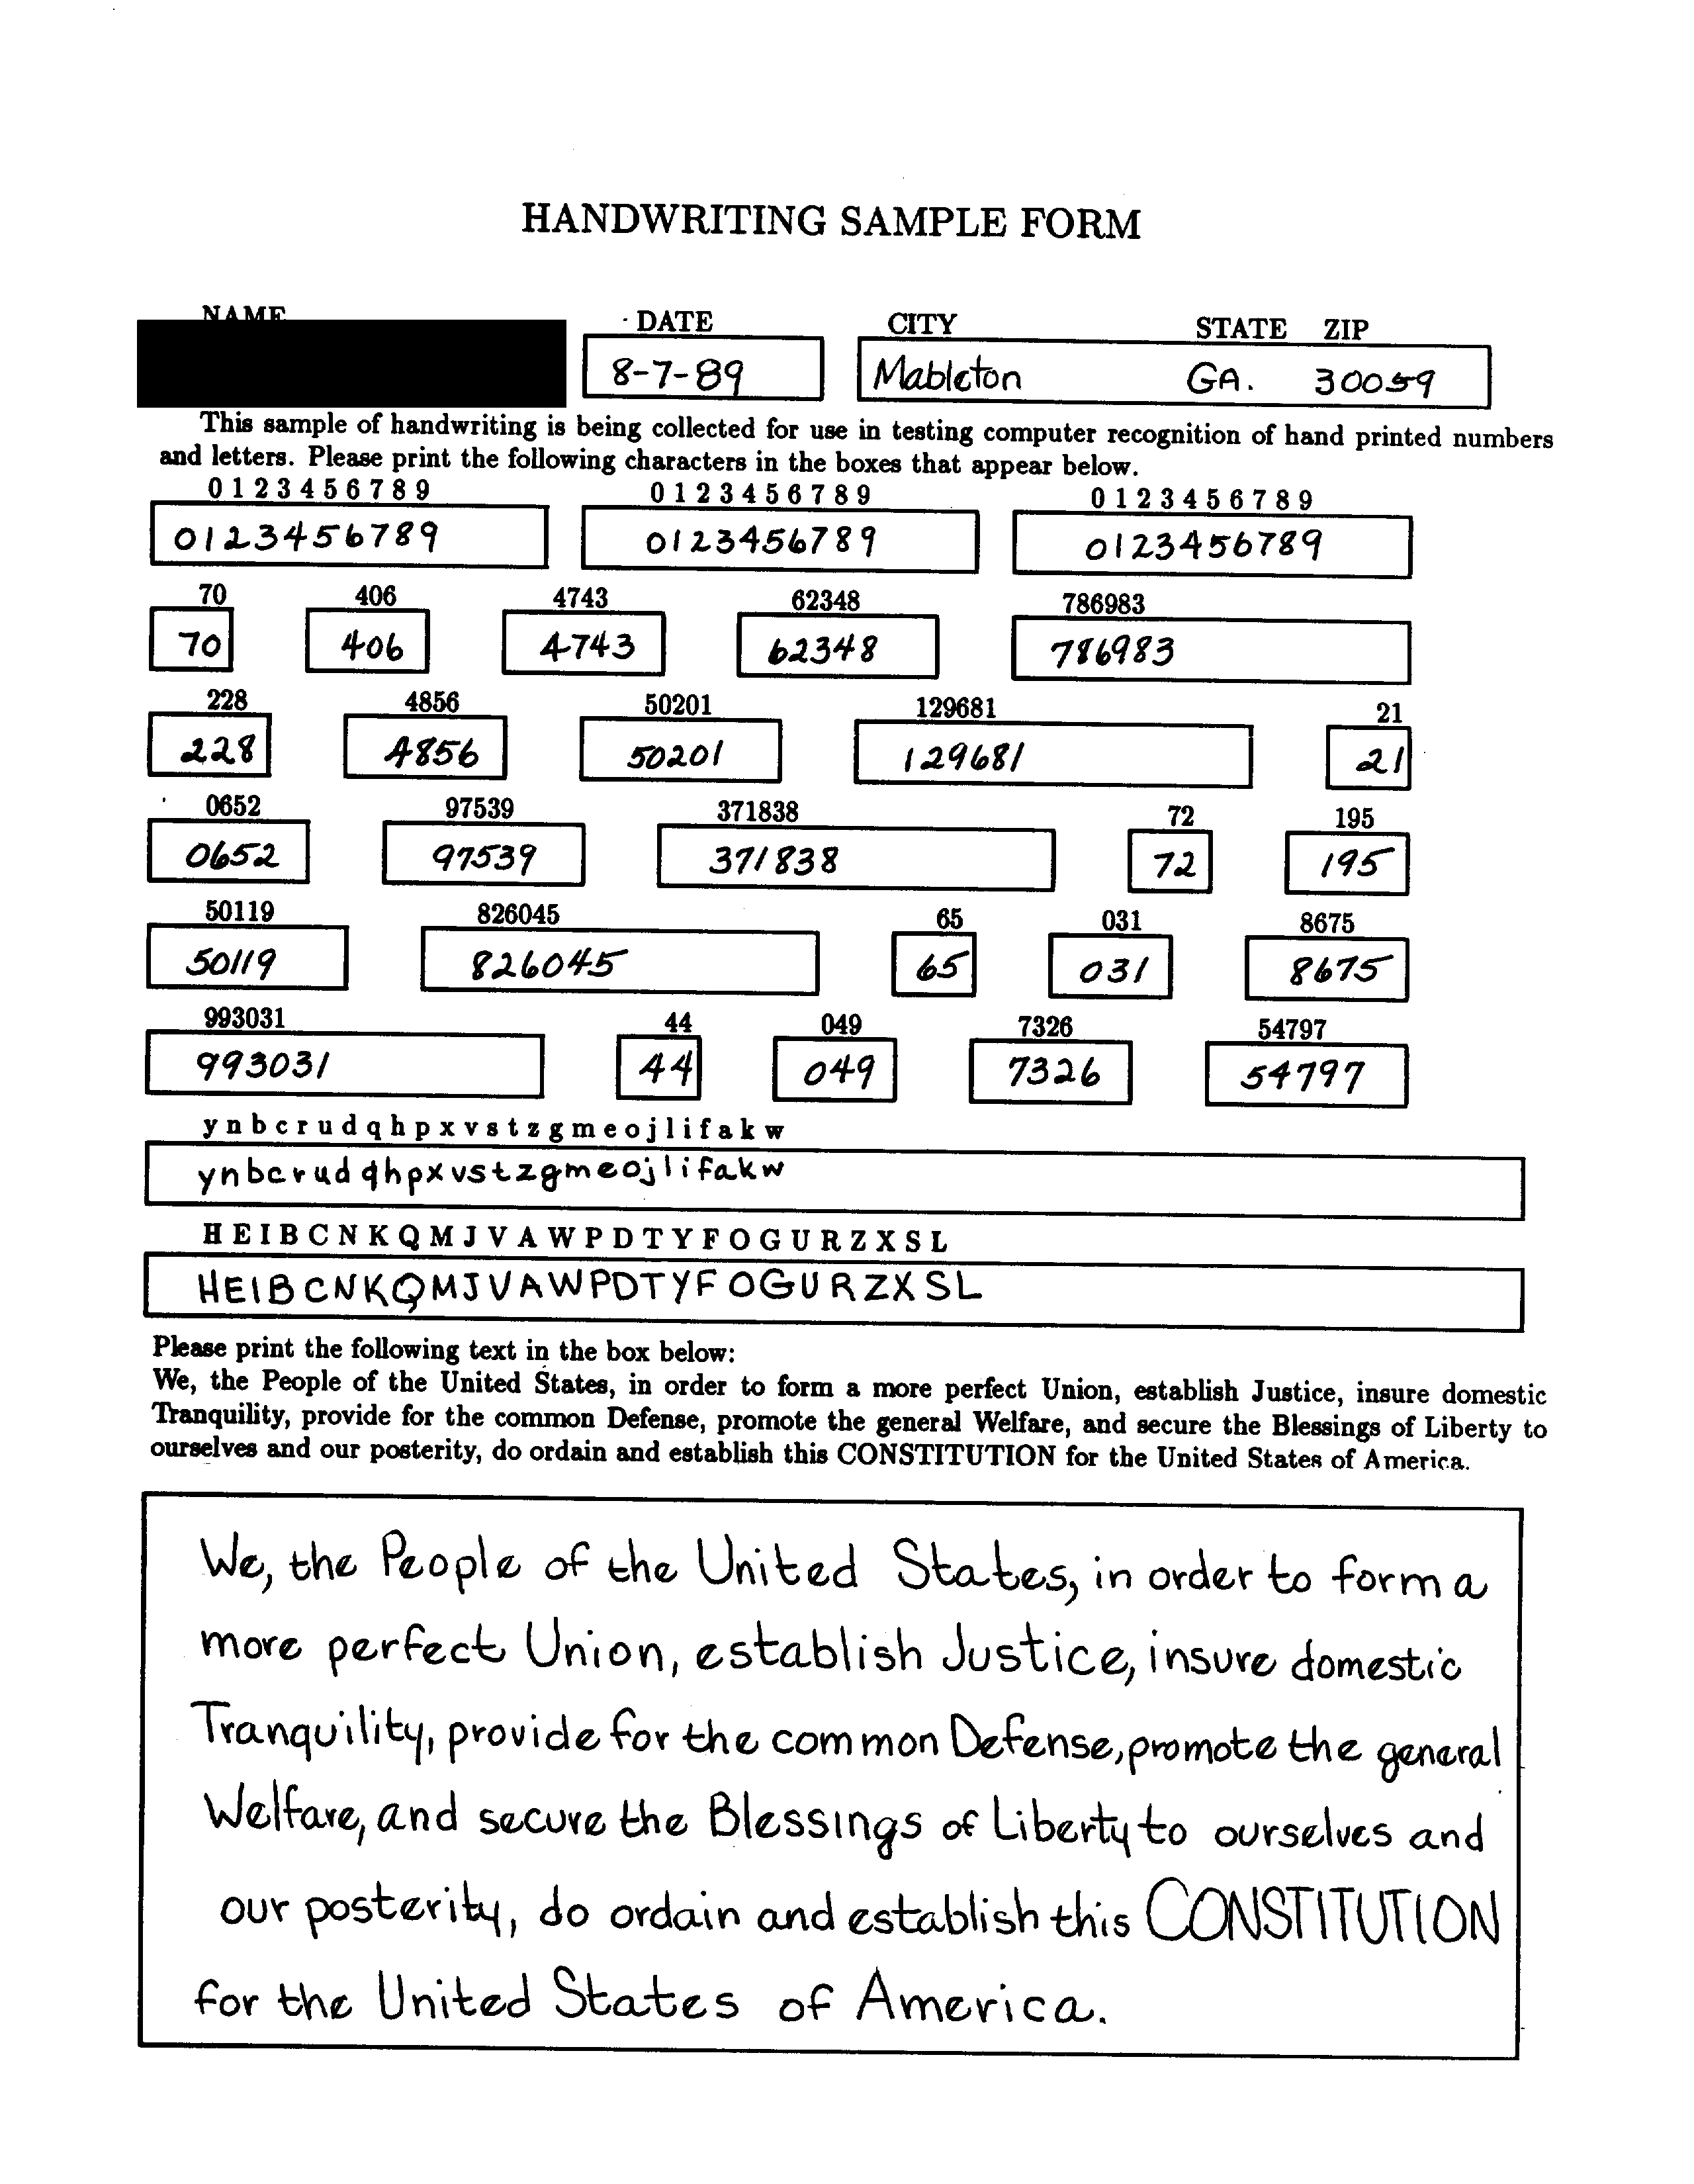 HANDWRITING SAMPLE FORM
NAME DATE CITY STATE ZIP
8-7-89 Mableton GA. 30059
This sample of handwriting is being collected for use in testing computer recognition of hand printed numbers
and letters. Please print the following characters in the boxes that appear below.
0 1 2 3 4 5 6 7 8 9 0 1 2 3 4 5 6 7 8 9 0 1 2 3 4 5 6 7 8 9
0123456789 0123456789 0123456789
70 406 4743 62348 786983
70 406 4743 62348 786983
228 4856 50201 129681 21
228 4856 50201 129681 21
0652 97539 371838 72 195
0652 97539 371838 72 195
50119 826045 65 031 8675
50119 826045 65 031 8675
993031 44 049 7326 54797
993031 44 049 7326 54797
y n b c r u d q h p x v s t z g m e o j l i f a k w
ynbcrudqhpxvstzgmeojlifakw
H E I B C N K Q M J V A W P D T Y F O G U R Z X S L
HEIBCNKQMJVAWPDTYFOGURZXSL
Please print the following text in the box below:
We, the People of the United States, in order to form a more perfect Union, establish Justice, insure domestic
Tranquility, provide for the common Defense, promote the general Welfare, and secure the Blessings of Liberty to
ourselves and our posterity, do ordain and establish this CONSTITUTION for the United States of America.
We, the People of the United States, in order to form a
more perfect Union, establish Justice, insure domestic
Tranquility, provide for the common Defense, promote the general
Welfare, and secure the Blessings of Liberty to ourselves and
our posterity, do ordain and establish this CONSTITUTION
for the United States of America.